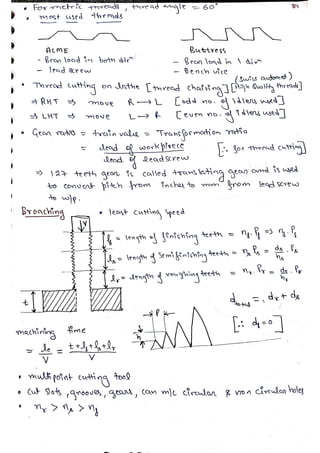 • For metric threads, thread angle = 60°
• most used threads
ACME
Buttress
- Bear load in both dirⁿ
- Bear load in 1 dirⁿ
- lead screw
- Bench vice
(Swiss automat)
• Thread cutting on lathe [thread chasing] [High Quality threads]
⇒ RHT ⇒ move R → L [odd no. of idlers used]
⇒ LHT ⇒ move L → R [even no. of idlers used]
• Gear ratio = train value = Transformation ratio
= lead of workpiece / lead of leadscrew [∵ for thread cutting]
⇒ 127 teeth gear is called translating gear and is used
to convert pitch from inches to mm from lead screw
to w/p.
Broaching • least cutting speed
V
lf = length of finishing teeth = nf.Pf ⇒ nf.Pf
ls = length of semifinishing teeth = ns Ps = ds/hs . Ps
lr = length of roughing teeth = nr. Pr = dr/hr . Pr
t
P
h
dtotal = dr + ds
[∵ df = 0]
machining time
= le/V = t+lf+ls+lr / V
• multipoint cutting tool
• cut slots, grooves, gears, can m/c circular & non circular holes
• nr > ns > nf